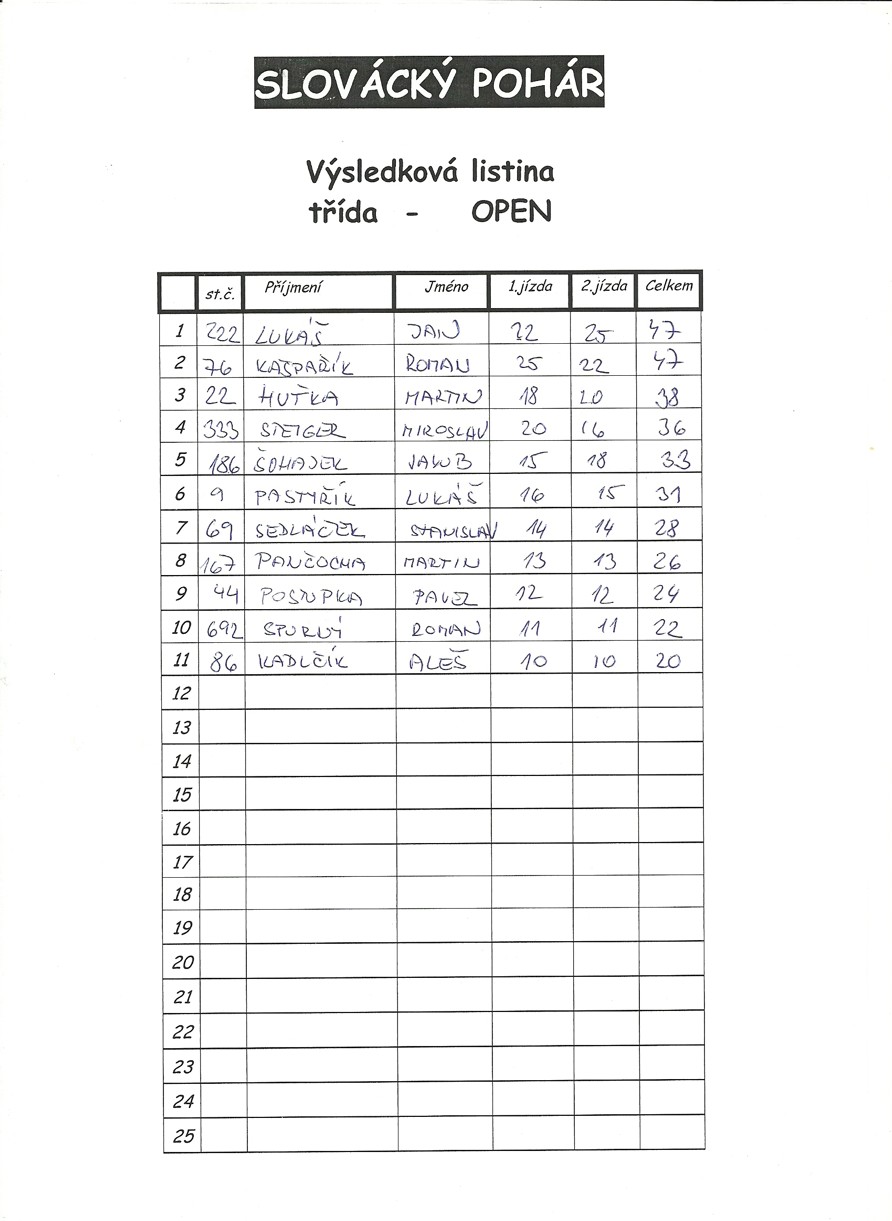 SLOVÁCKÝ POHÁR
Výsledková listina
třída - OPEN
st.č. Příjmení Jméno 1.jízda 2.jízda Celkem
1 222 LUKÁŠ JAN 22 25 47
2 76 KAŠPAŘÍK ROMAN 25 22 47
3 22 HUŤKA MARTIN 18 20 38
4 333 STEIGER MIROSLAV 20 16 36
5 186 ŠOHAJEK JAKUB 15 18 33
6 9 PASTYŘÍK LUKÁŠ 16 15 31
7 69 SEDLÁČEK STANISLAV 14 14 28
8 167 PANČOCHA MARTIN 13 13 26
9 44 POSTUPKA PAVEL 12 12 24
10 692 SPURNÝ ROMAN 11 11 22
11 86 KADLČÍK ALEŠ 10 10 20
12
13
14
15
16
17
18
19
20
21
22
23
24
25